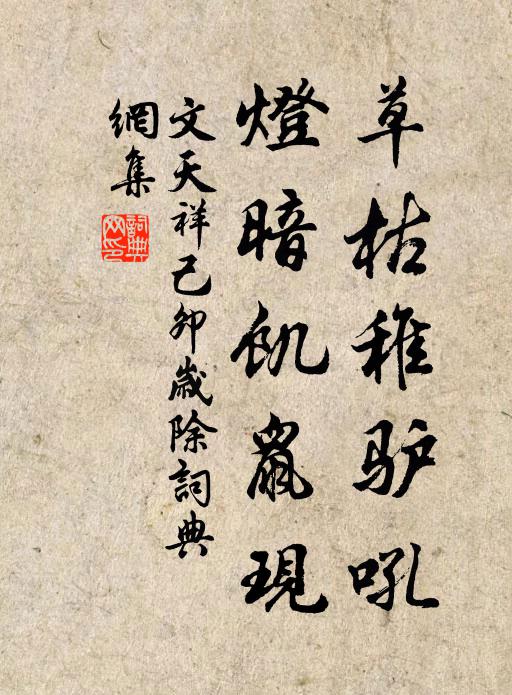 草枯稚驴吼
燈暗飢鼠現
文天祥己卯歲除詞典
網集
詞典
网印